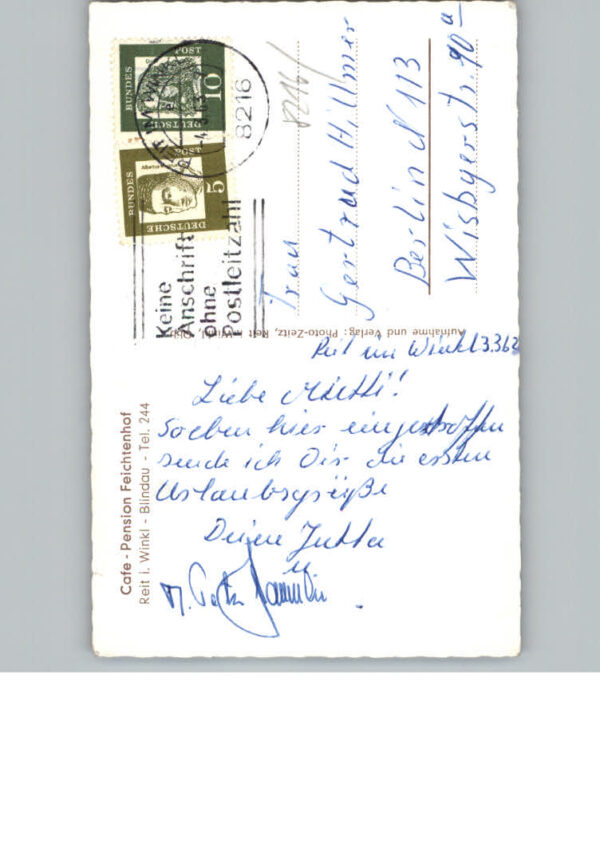 Cafe - Pension Feichtenhof
Reit i. Winkl - Blindau - Tel. 244
Aufnahme und Verlag: Photo-Zeitz, Reit i. Winkl,
DEUTSCHE
BUNDES
POST
10
DEUTSCHE
BUNDES
POST
5
8216
Keine
Anschrift
ohne
Postleitzahl
8216
Frau
Gertrud Hillmer
Berlin N 113
Wisbyerstr. 90a
Reit im Winkl 3.3.63
Liebe Mutti!
Soeben hier eingetroffen
sende ich Dir die ersten
Urlaubsgrüße
Deine Jutta